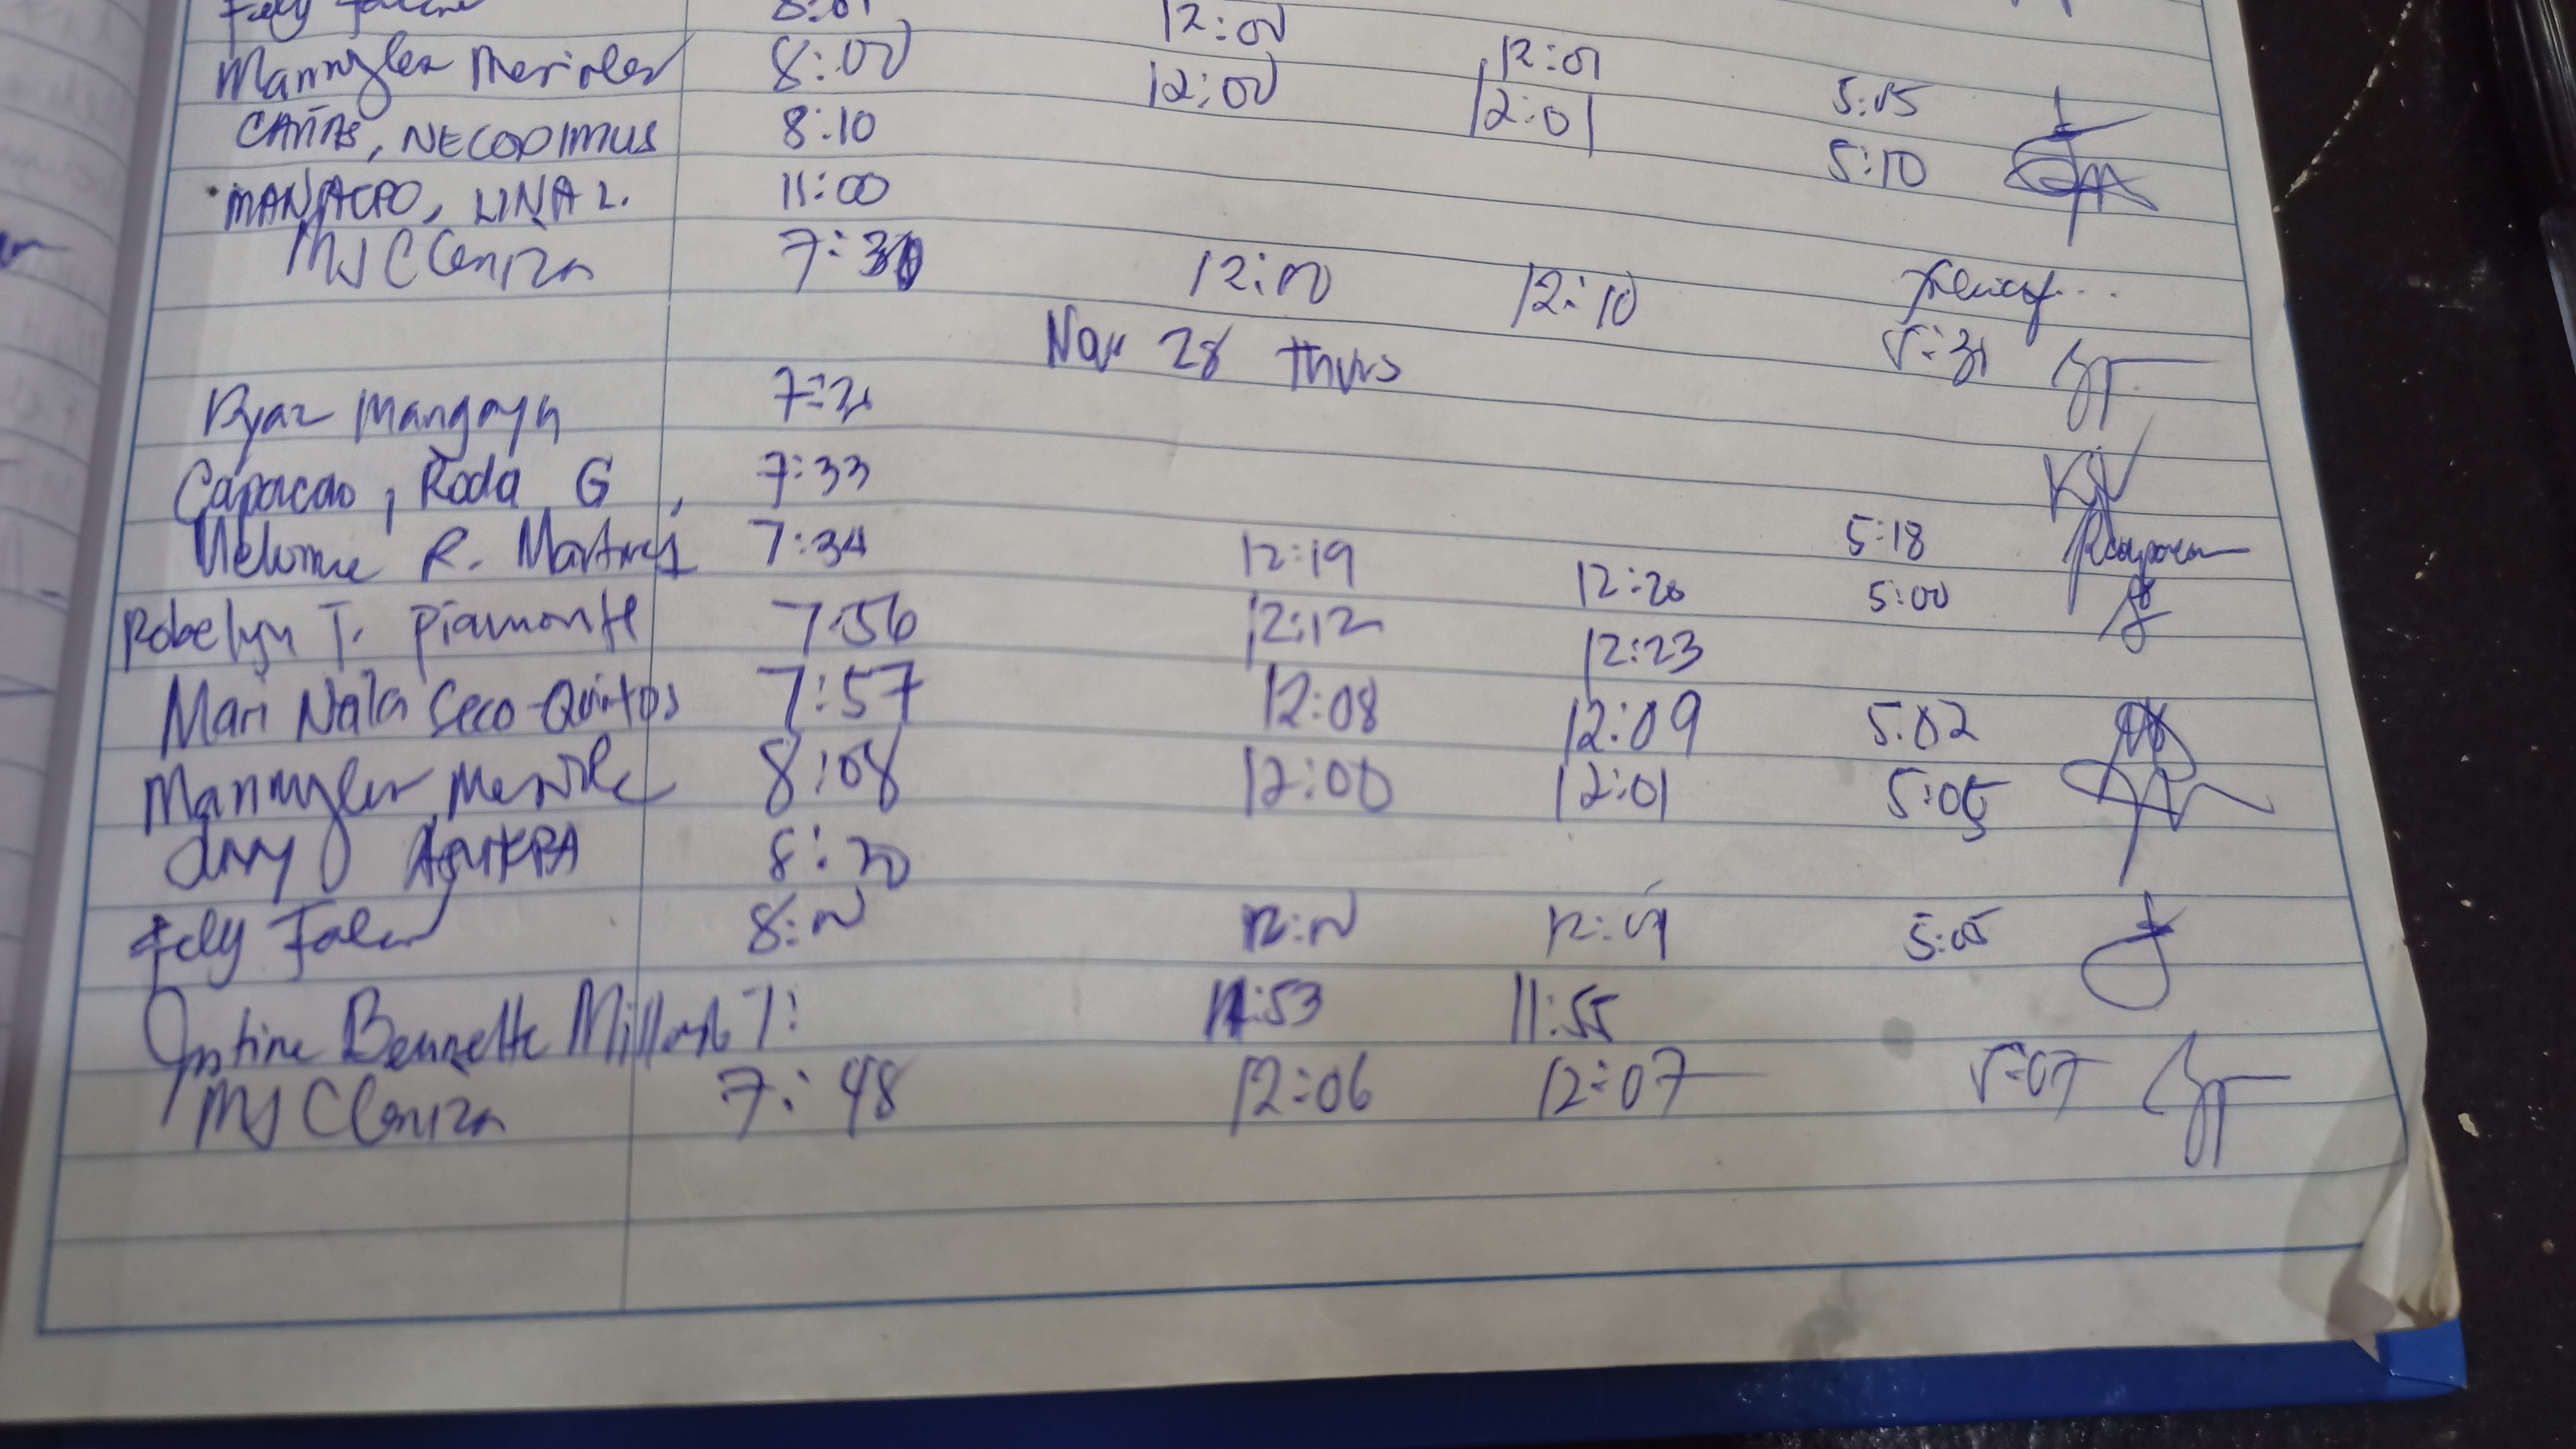 8:01 12:00 12:01 5:05
Mannylen 8:00 12:00 12:01 5:10
CAÑAS, NECODIMUS 8:10
MANACPO, LINA L. 11:00
MJ C Ceniza 7:30 12:00 12:10 5:31
Nov 28 thurs
Ryan Mangaya
Capacao, Roda G 7:33 12:19 12:20 5:18
R. Martinez 7:34 12:12 12:23 5:00
Robelyn T. Piamonte 7:56
Mari Nala Seco-Quintos 7:57 12:08 12:09 5:02
Mannylen 8:08 12:00 12:01 5:05
8:20
Fely 8:00 12:00 12:01 5:05
Justine Bennette 7: 11:53 11:55
MJ C Ceniza 7:48 12:06 12:07 5:07